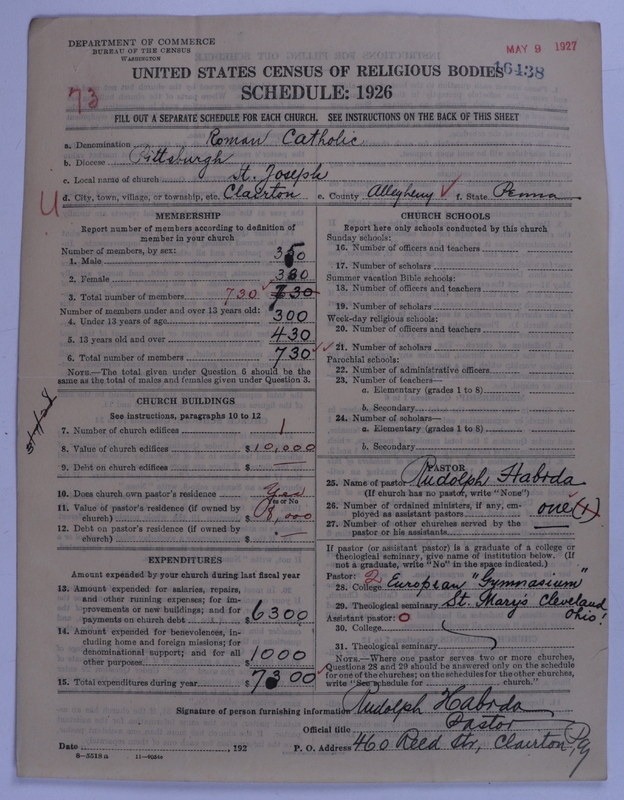 DEPARTMENT OF COMMERCE
BUREAU OF THE CENSUS
WASHINGTON
MAY 9 1927
16438
UNITED STATES CENSUS OF RELIGIOUS BODIES
73
SCHEDULE: 1926
FILL OUT A SEPARATE SCHEDULE FOR EACH CHURCH. SEE INSTRUCTIONS ON THE BACK OF THIS SHEET
a. Denomination Roman Catholic
b. Diocese Pittsburgh
c. Local name of church St. Joseph
d. City, town, village, or township, etc. Clairton e. County Allegheny ✓ f. State Penna
MEMBERSHIP
Report number of members according to definition of
member in your church
Number of members, by sex:
1. Male 350
2. Female 380
3. Total number of members 730 730
Number of members under and over 13 years old:
4. Under 13 years of age 300
5. 13 years old and over 430
6. Total number of members 730 ✓✓
NOTE.—The total given under Question 6 should be the
same as the total of males and females given under Question 3.
CHURCH BUILDINGS
See instructions, paragraphs 10 to 12
7. Number of church edifices 1
8. Value of church edifices $10,000
9. Debt on church edifices $ —
10. Does church own pastor's residence Yes
Yes or No
11. Value of pastor's residence (if owned by
church) $8,000
12. Debt on pastor's residence (if owned by
church) $ —
EXPENDITURES
Amount expended by your church during last fiscal year
13. Amount expended for salaries, repairs,
and other running expenses; for im-
provements or new buildings; and for
payments on church debt $6300
14. Amount expended for benevolences, in-
cluding home and foreign missions; for
denominational support; and for all
other purposes $1000
15. Total expenditures during year $7300 ✓
CHURCH SCHOOLS
Report here only schools conducted by this church
Sunday schools:
16. Number of officers and teachers
17. Number of scholars
Summer vacation Bible schools:
18. Number of officers and teachers
19. Number of scholars
Week-day religious schools:
20. Number of officers and teachers
21. Number of scholars
Parochial schools:
22. Number of administrative officers
23. Number of teachers—
a. Elementary (grades 1 to 8)
b. Secondary
24. Number of scholars—
a. Elementary (grades 1 to 8)
b. Secondary
PASTOR
25. Name of pastor Rudolph Habrda
(If church has no pastor, write "None")
26. Number of ordained ministers, if any, em-
ployed as assistant pastors one (1)
27. Number of other churches served by the
pastor or his assistants —
If pastor (or assistant pastor) is a graduate of a college or
theological seminary, give name of institution below. (If
not a graduate, write "No" in the space indicated.)
Pastor: 2
28. College European "Gymnasium"
29. Theological seminary St. Mary's Cleveland
Ohio!
Assistant pastor: 0
30. College
31. Theological seminary
NOTE.—Where one pastor serves two or more churches,
Questions 28 and 29 should be answered only on the schedule
for one of the churches; on the schedules for the other churches,
write "See schedule for church."
Signature of person furnishing information Rudolph Habrda
Official title Pastor
Date , 192 P. O. Address 460 Reed Str, Clairton, Pa
8—5513a 11—9024a